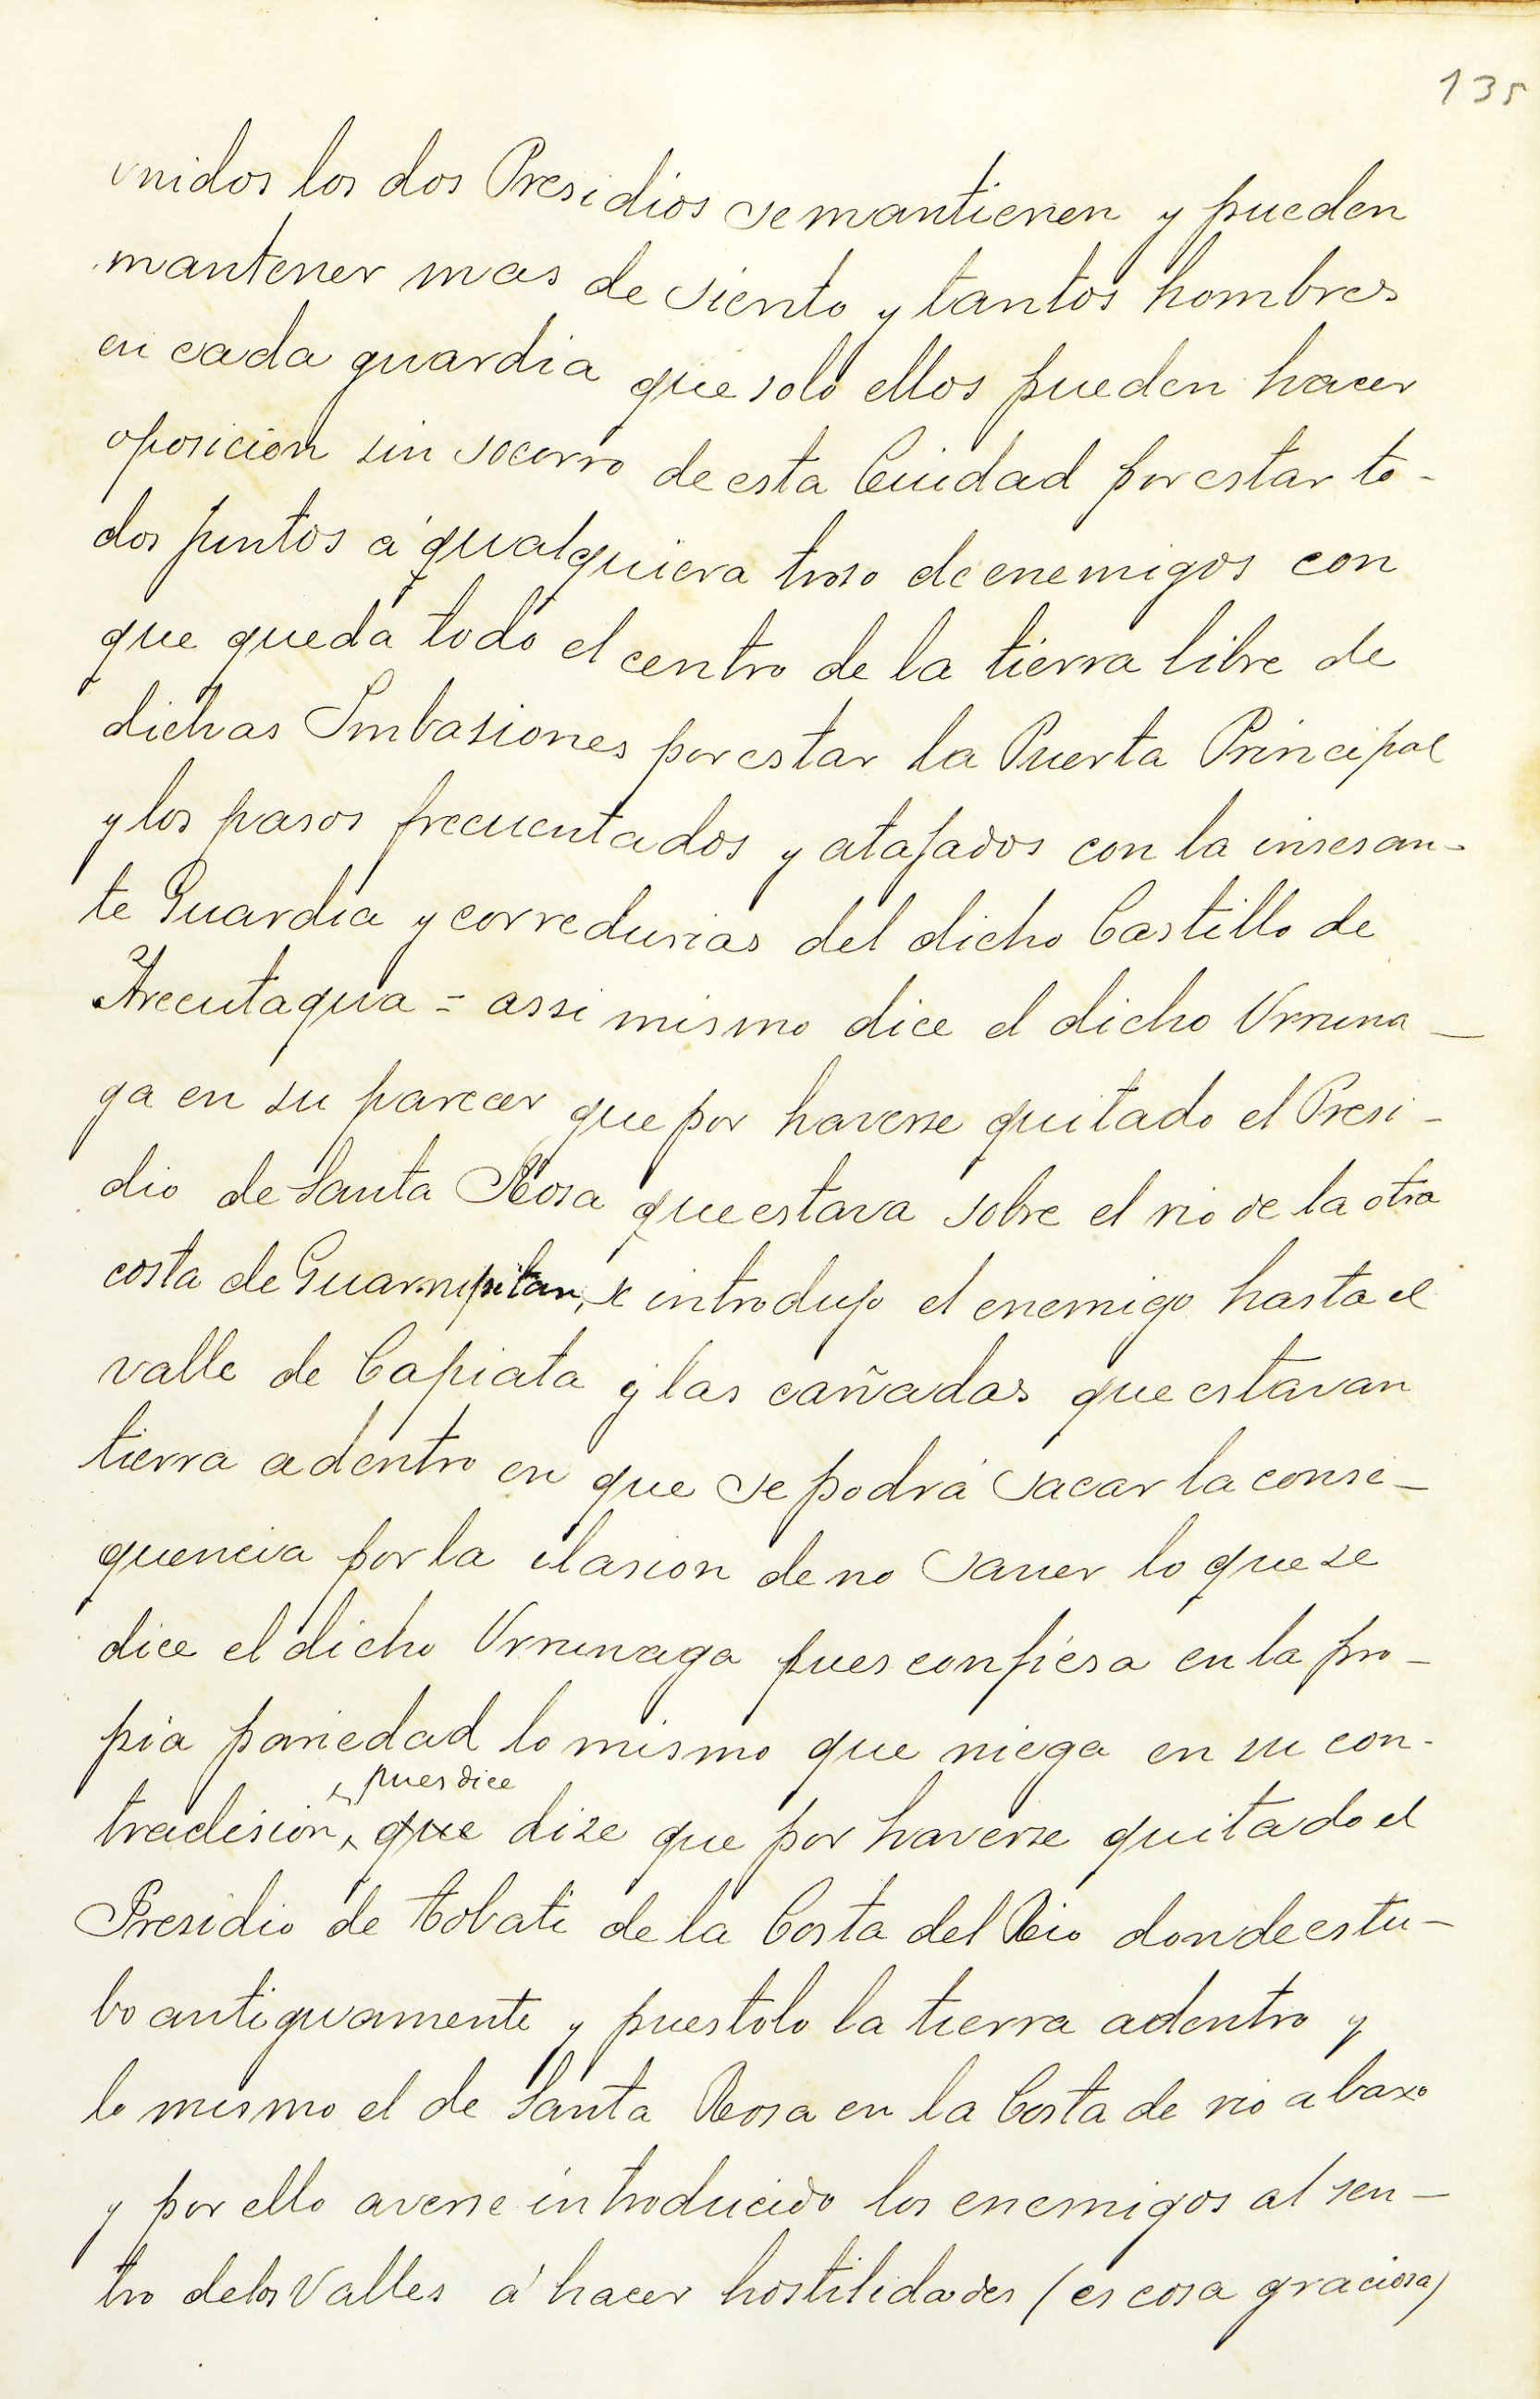 135
unidos los dos Presidios se mantienen y pueden
mantener mas de siento y tantos hombres
en cada guardia que solo ellos pueden hacer
oposicion sin socorro de esta Ciudad por estar to-
dos juntos á qualquiera troso de enemigos con
que queda todo el centro de la tierra libre de
dichas Imbasiones por estar la Puerta Principal
y los pasos frecuentados y atajados con la insesan-
te Guardia y corredurias del dicho Castillo de
Arecutagua = assi mismo dice el dicho Vrruna-
ga en su parecer que por haverse quitado el Presi-
dio de Santa Rosa que estava sobre el rio de la otra
costa de Guarnipitan, se introdujo el enemigo hasta el
valle de Capiata y las cañadas que estavan
tierra adentro en que se podrá sacar la conse-
quencia por la ilasion de no saver lo que se
dice el dicho Vrrunaga pues confiesa en la pro-
pia pariedad lo mismo que niega en su con-
pues dice
tradision, que dise que por haverse quitado el
Presidio de Tobati de la Costa del Rio donde estu-
bo antiguamente y puestolo la tierra adentro y
lo mismo el de Santa Rosa en la Costa de rio abaxo
y por ello averse introducido los enemigos al sen-
tro delos Valles á hacer hostilidades (es cosa graciosa)